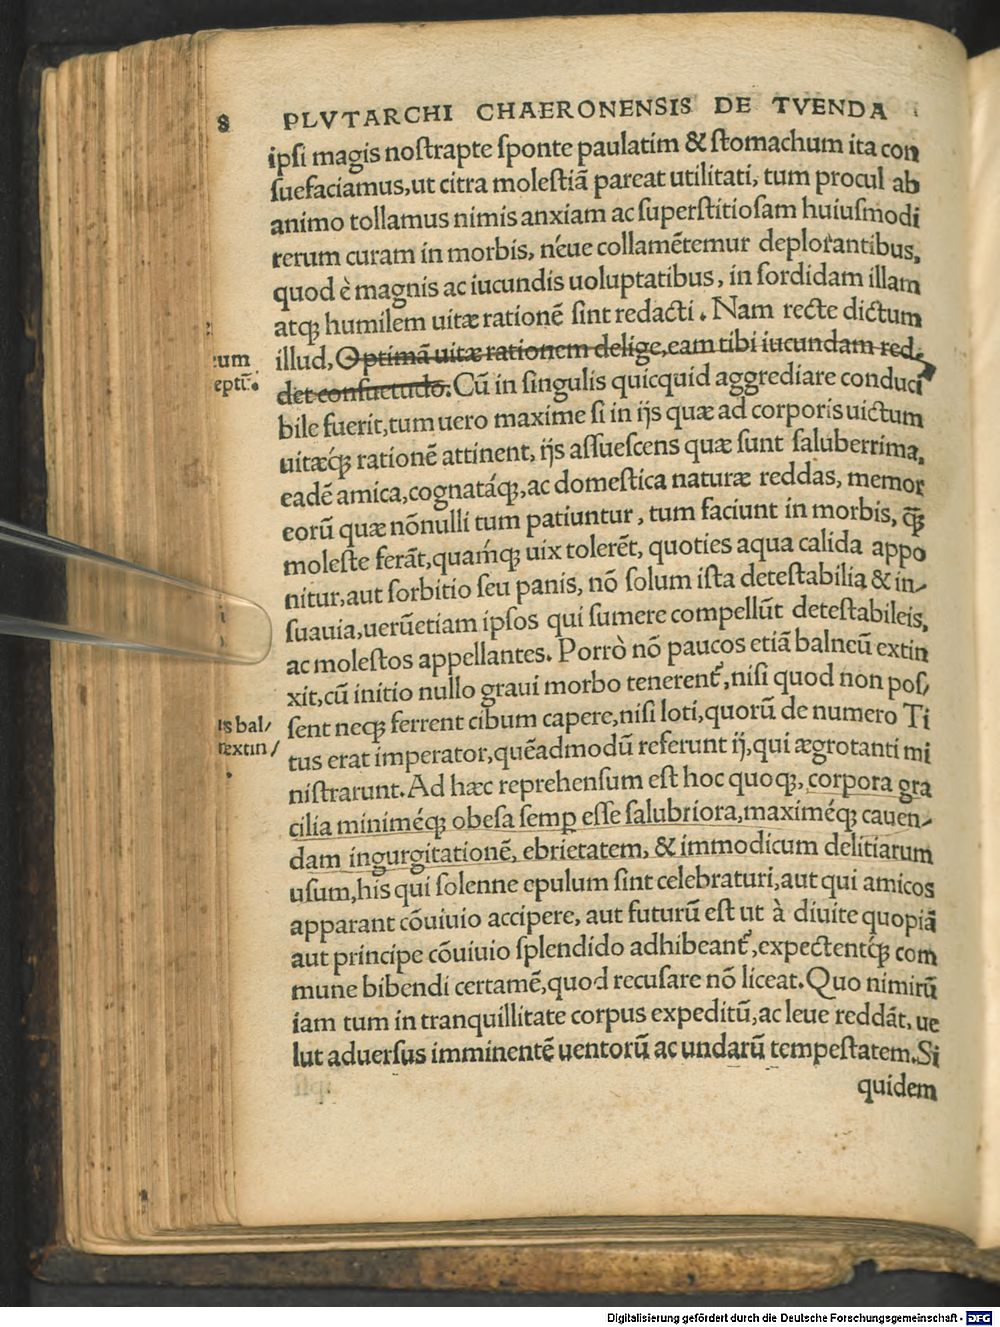 8 PLVTARCHI CHAERONENSIS DE TVENDA
ipſi magis noſtrapte ſponte paulatim & ſtomachum ita con
ſuefaciamus,ut citra moleſtiā pareat utilitati, tum procul ab
animo tollamus nimis anxiam ac ſuperſtitioſam huiuſmodi
rerum curam in morbis, néue collamētemur deplorantibus,
quod è magnis ac iucundis uoluptatibus, in ſordidam illam
atq; humilem uitæ rationē ſint redacti. Nam recte dictum
illud, Optimā uitæ rationem delige, eam tibi iucundam red-
det conſuetudo. Cū in ſingulis quicquid aggrediare conduci
bile fuerit,tum uero maxime ſi in ijs quæ ad corporis uictum
uitæq́; rationē attinent, ijs aſſueſcens quæ ſunt ſaluberrima,
eadē amica,cognatáq;,ac domeſtica naturæ reddas, memor
eorū quæ nōnulli tum patiuntur, tum faciunt in morbis, q̄ꝫ
moleſte ferāt,quamq́; uix tolerēt, quoties aqua calida appo
nitur,aut ſorbitio ſeu panis, nō ſolum iſta deteſtabilia & in-
ſuauia,uerūetiam ipſos qui ſumere compellūt deteſtabileis,
ac moleſtos appellantes. Porrò nō paucos etiā balneū extin
xit,cū initio nullo graui morbo tenerent᷑,niſi quod non poſ/
ſent neq; ferrent cibum capere,niſi loti,quorū de numero Ti
tus erat imperator,quēadmodū referunt ij,qui ægrotanti mi
niſtrarunt. Ad hæc reprehenſum eſt hoc quoq;, corpora gra
cilia miniméq; obeſa ſemꝑ eſſe ſalubriora,maximéq; cauen-
dam ingurgitationē, ebrietatem, & immodicum delitiarum
uſum,his qui ſolenne epulum ſint celebraturi,aut qui amicos
apparant cōuiuio accipere, aut futurū eſt ut à diuite quopiā
aut principe cōuiuio ſplendido adhibeant᷑,expectentq́; com
mune bibendi certamē,quod recuſare nō liceat. Quo nimirū
iam tum in tranquillitate corpus expeditū,ac leue reddāt, ue
lut aduerſus imminentē uentorū ac undarū tempeſtatem. Si
quidem
um
eptū.
is bal/
extin/
Digitalisierung gefördert durch die Deutsche Forschungsgemeinschaft - DFG